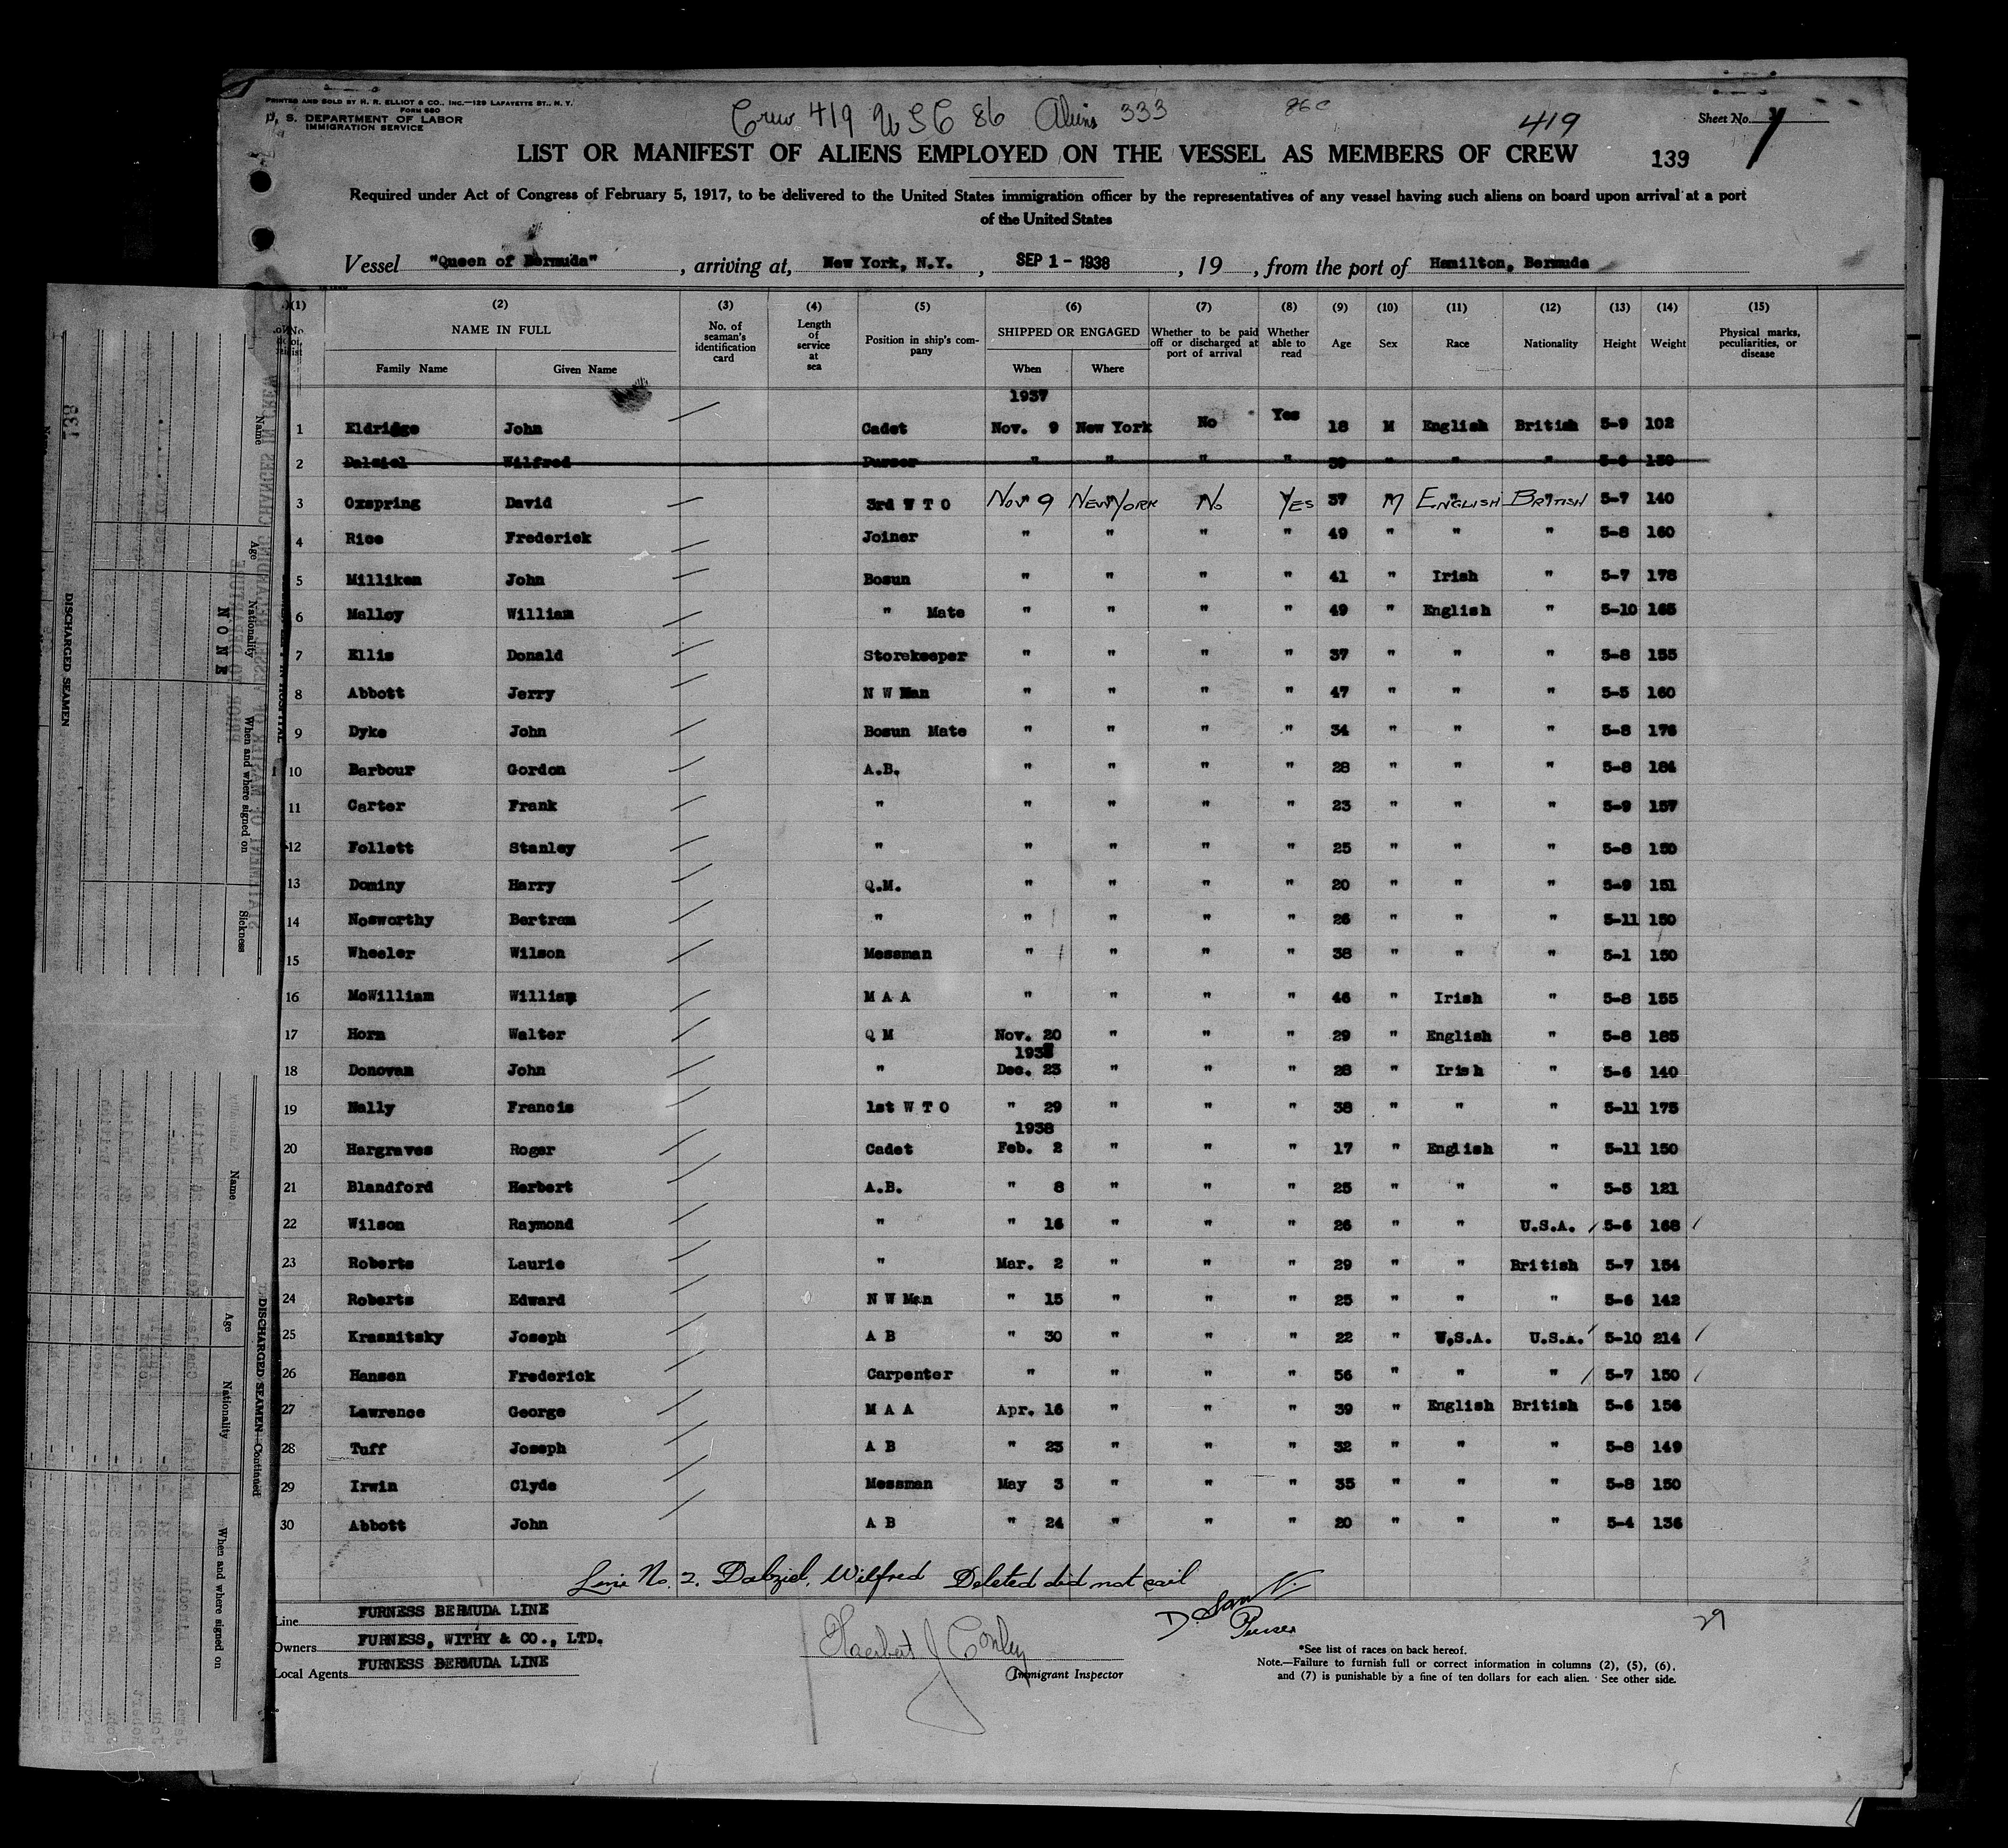 PRINTED AND SOLD BY H. R. ELLIOT & CO., INC.—129 LAFAYETTE ST., N. Y.
FORM 680
U. S. DEPARTMENT OF LABOR
IMMIGRATION SERVICE
Crew 419 US C 86 Aliens 333
86 C
419
Sheet No. 1
LIST OR MANIFEST OF ALIENS EMPLOYED ON THE VESSEL AS MEMBERS OF CREW 139
Required under Act of Congress of February 5, 1917, to be delivered to the United States immigration officer by the representatives of any vessel having such aliens on board upon arrival at a port
of the United States
Vessel "Queen of Bermuda", arriving at, New York, N.Y., SEP 1 - 1938, 19 , from the port of Hamilton, Bermuda
(1) (2) (3) (4) (5) (6) (7) (8) (9) (10) (11) (12) (13) (14) (15)
NAME IN FULL
Family Name Given Name
No. of seaman's identification card
Length of service at sea
Position in ship's company
SHIPPED OR ENGAGED
When Where
Whether to be paid off or discharged at port of arrival
Whether able to read
Age Sex Race Nationality Height Weight
Physical marks, peculiarities, or disease
1937
1 Eldridge John Cadet Nov. 9 New York No Yes 18 M English British 5-9 102
2 Dalziel Wilfred Purser " " " " 39 " " " 5-6 150
3 Oxspring David 3rd W T O Nov 9 New York No Yes 37 M English British 5-7 140
4 Rice Frederick Joiner " " " " 49 " " " 5-8 160
5 Milliken John Bosun " " " " 41 " Irish " 5-7 178
6 Malloy William " Mate " " " " 49 " English " 5-10 165
7 Ellis Donald Storekeeper " " " " 37 " " " 5-8 155
8 Abbott Jerry N W Man " " " " 47 " " " 5-5 160
9 Dyke John Bosun Mate " " " " 34 " " " 5-8 176
10 Barbour Gordon A.B. " " " " 28 " " " 5-8 184
11 Carter Frank " " " " " 23 " " " 5-9 157
12 Follett Stanley " " " " " 25 " " " 5-8 150
13 Dominy Harry Q.M. " " " " 20 " " " 5-9 151
14 Nosworthy Bertram " " " " " 26 " " " 5-11 150
15 Wheeler Wilson Messman " " " " 38 " " " 5-1 150
16 McWilliam William M A A " " " " 46 " Irish " 5-8 155
17 Horn Walter Q M Nov. 20 " " " 29 " English " 5-8 185
1937
18 Donovan John " Dec. 23 " " " 28 " Irish " 5-6 140
19 Nally Francis 1st W T O " 29 " " " 38 " " " 5-11 175
1938
20 Hargraves Roger Cadet Feb. 2 " " " 17 " English " 5-11 150
21 Blandford Herbert A.B. " 8 " " " 25 " " " 5-5 121
22 Wilson Raymond " " 16 " " " 26 " " U.S.A. 5-6 168
23 Roberts Laurie " Mar. 2 " " " 29 " " British 5-7 154
24 Roberts Edward N W Man " 15 " " " 25 " " " 5-6 142
25 Krasnitsky Joseph A B " 30 " " " 22 " U.S.A. U.S.A. 5-10 214
26 Hansen Frederick Carpenter " " " " 56 " " " 5-7 150
27 Lawrence George M A A Apr. 16 " " " 39 " English British 5-6 156
28 Tuff Joseph A B " 23 " " " 32 " " " 5-8 149
29 Irwin Clyde Messman May 3 " " " 35 " " " 5-8 150
30 Abbott John A B " 24 " " " 20 " " " 5-4 136
Line No. 2. Dalziel, Wilfred Deleted did not sail
Purser
29
Line FURNESS BERMUDA LINE
Owners FURNESS, WITHY & CO., LTD.
Local Agents FURNESS BERMUDA LINE
Herbert J Conley
Immigrant Inspector
*See list of races on back hereof.
Note.—Failure to furnish full or correct information in columns (2), (5), (6),
and (7) is punishable by a fine of ten dollars for each alien. See other side.
138
DISCHARGED SEAMEN
Name Age Nationality When and where signed on Sickness
NONE
DISCHARGED SEAMEN—Continued
Name Age Nationality When and where signed on